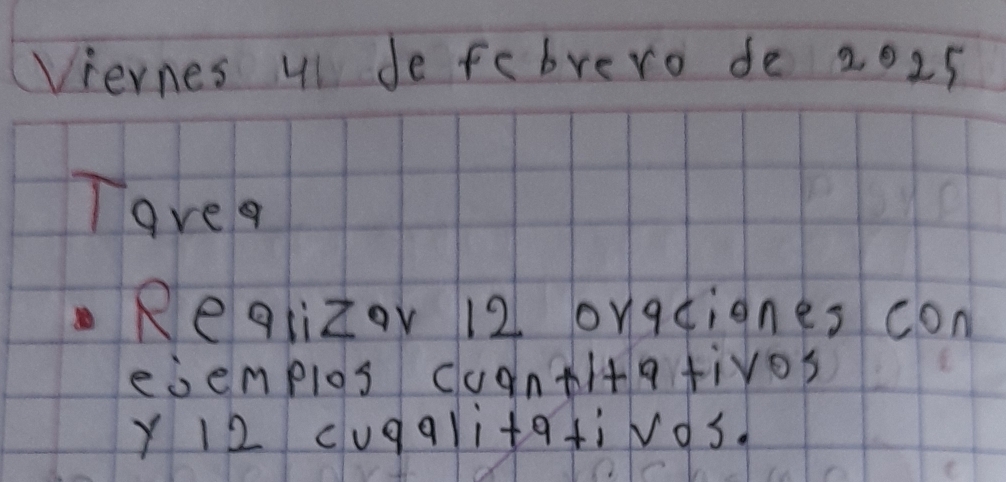 Viernes 41 de febrero de 2025
Tarea
• Realizar 12 oraciones con
ejemplos cuantitativos
y 12 cuqalitativos.